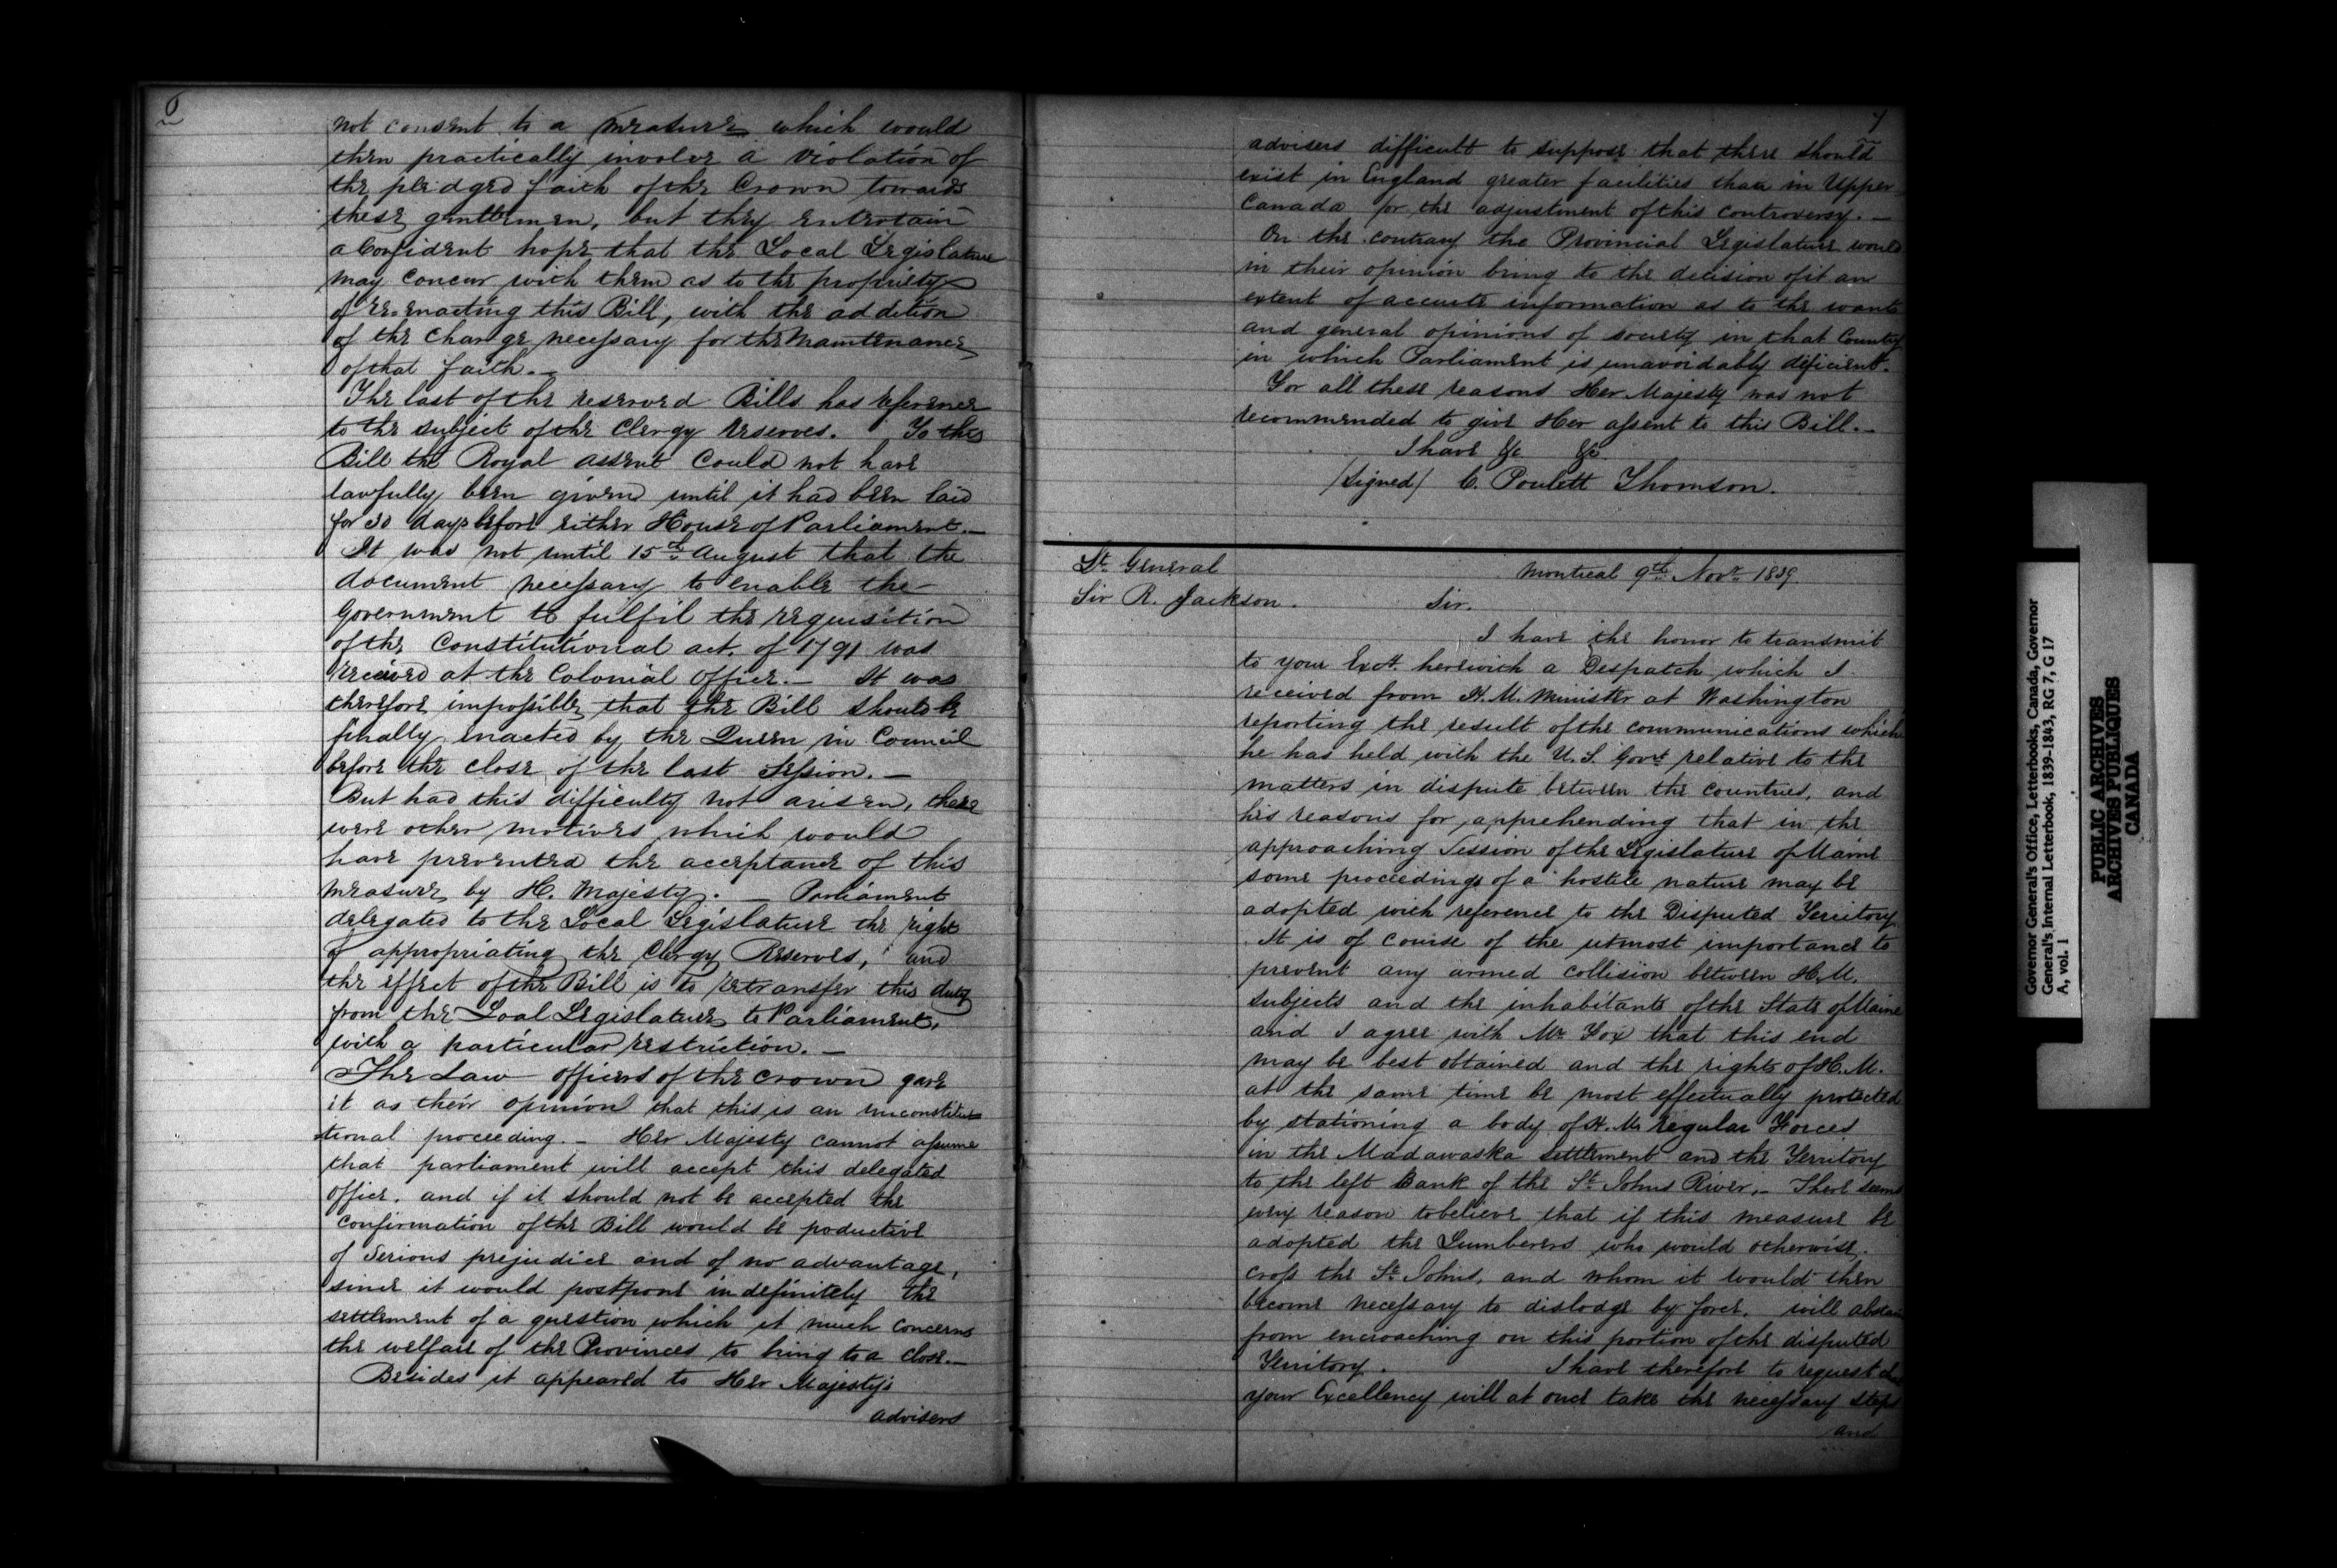 6
not consent to a measure which would
then practically involve a violation of
the pledged faith of the Crown towards
these gentlemen, but they entertain
a Confident hope that the Local Legislature
may Concur with them as to the propriety
of re-enacting this Bill, with the addition
of the change necessary for the maintenance
of that faith.—
The last of the reserved Bills has reference
to the subject of the Clergy reserves. To this
Bill the Royal assent could not have
lawfully been given until it had been laid
for 30 days before either House of Parliament.—
It was not until 15th August that the
document necessary to enable the
Government to fulfil the requisition
of the Constitutional act. of 1791 was
received at the Colonial Office.— It was
therefore impossible that the Bill should be
finally enacted by the Queen in Council
before the close of the last Session.—
But had this difficulty not arisen, there
were other motives which would
have prevented the acceptance of this
measure by H. Majesty.— Parliament
delegated to the Local Legislature the right
of appropriating the Clergy Reserves, and
the effect of the Bill is to retransfer this duty
from the Loal Legislature to Parliament,
with a particular restriction.—
The Law officers of the Crown gave
it as their opinion that this is an unconstitu-
tional proceeding.— Her Majesty cannot assume
that parliament will accept this delegated
office, and if it should not be accepted the
confirmation of the Bill would be poductive
of Serious prejudice and of no advantage,
since it would postpone indefinitely the
settlement of a question which it much concerns
the welfare of the Provinces to bring to a close.—
Besides it appeared to Her Majesty's
advisers
7
advisers difficult to suppose that there should
exist in England greater facilities than in Upper
Canada for the adjustment of this controversy.—
On the contrary the Provincial Legislature would
in their opinion bring to the decision of it an
extent of accurte information as to the wants
and general opinions of society in that Country
in which Parliament is unavoidably deficient.
For all these reasons Her Majesty was not
recommended to give Her assent to this Bill.—
I have &c &c
/signed/ C. Poulett Thomson.
Lt. General
Sir R. Jackson.
Montreal 9th Novr 1839.
Sir.
I have the honor to transmit
to your Excy. herewith a Despatch which I
received from H. M. Minister at Washington
reporting the result of the communications which
he has held with the U. S. Govt relative to the
matters in dispute between the countries, and
his reasons for apprehending that in the
approaching Session of the Legislature of Maine
some proceedings of a hostile nature may be
adopted with reference to the Disputed Territory.
It is of course of the utmost importance to
prevent any armed collision between H. M.
subjects and the inhabitants of the State of Maine
and I agree with Mr. Fox that this end
may be best obtained and the rights of H. M.
at the same time be most effectually protected
by stationing a body of H. Ms regular Forces
in the Madawaska settlement and the Territory
to the left Bank of the St. Johns River.— There seems
every reason to believe that if this measure be
adopted the Lumberers who would otherwise
cross the St. Johns, and whom it would then
become necessary to dislodge by force, will abstain
from encroaching on this portion of the disputed
Territory. I have therefore to request
your Excellency will at once take the necessary steps
and
Governor General's Office, Letterbooks, Canada, Governor
General's Internal Letterbook, 1839-1843, RG 7, G 17
A, vol. 1
PUBLIC ARCHIVES
ARCHIVES PUBLIQUES
CANADA